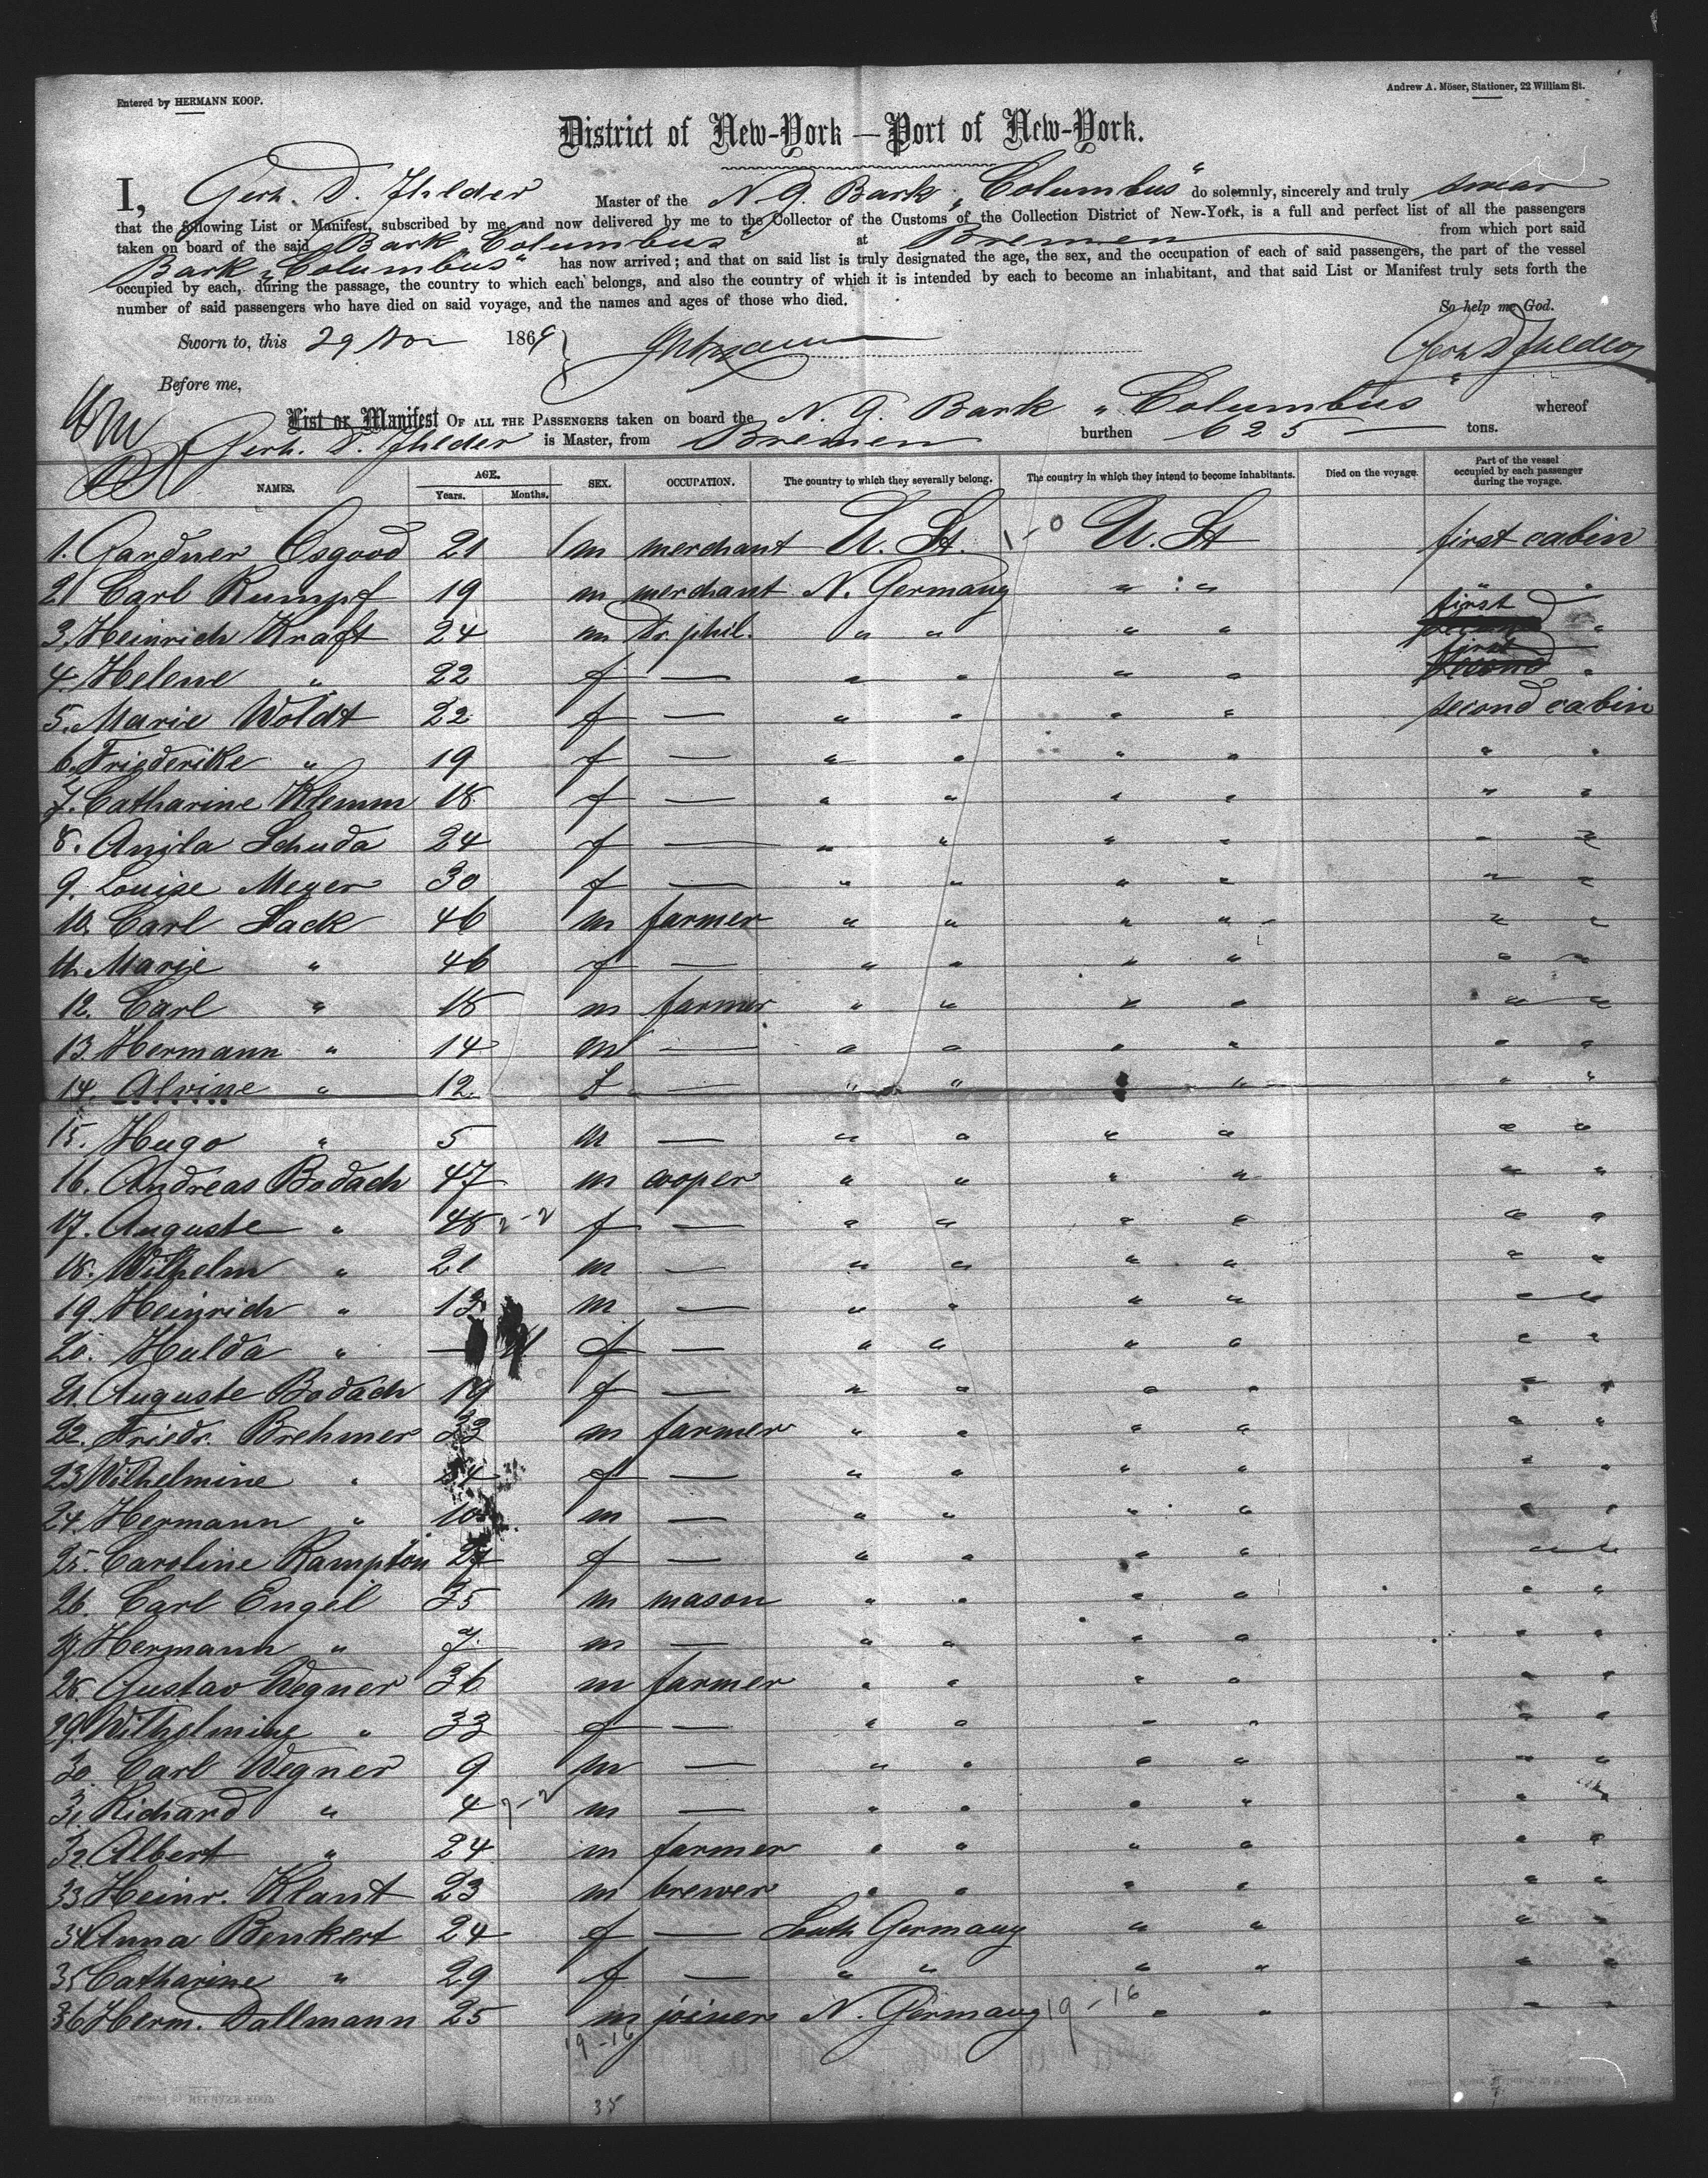 Entered by HERMANN KOOP.
Andrew A. Möser, Stationer, 22 William St.
District of New-York — Port of New-York.
I, Gerh. D. Ihlder Master of the N. G. Bark „Columbus" do solemnly, sincerely and truly swear
that the following List or Manifest, subscribed by me, and now delivered by me to the Collector of the Customs of the Collection District of New-York, is a full and perfect list of all the passengers
taken on board of the said Bark „Columbus" at Bremen from which port said
Bark „Columbus" has now arrived; and that on said list is truly designated the age, the sex, and the occupation of each of said passengers, the part of the vessel
occupied by each, during the passage, the country to which each belongs, and also the country of which it is intended by each to become an inhabitant, and that said List or Manifest truly sets forth the
number of said passengers who have died on said voyage, and the names and ages of those who died.
So help me God.
Sworn to, this 29 Nov 1869
Gerh D Ihlder
Before me,
List or Manifest OF ALL THE PASSENGERS taken on board the N. G. Bark „Columbus" whereof
Gerh. D. Ihlder is Master, from Bremen burthen 625 — tons.
NAMES. AGE. Years. Months. SEX. OCCUPATION. The country to which they severally belong. The country in which they intend to become inhabitants. Died on the voyage. Part of the vessel occupied by each passenger during the voyage.
1. Gardner Osgood 21 m merchant U. St. 1-0 U. St first cabin
2 Carl Rumpf 19 m merchant N. Germany " "
3. Heinrich Kraft 24 m Dr. phil. " " " " first "
4. Helene " 22 f — " " " " first "
5. Marie Woldt 22 f — " " " " second cabin
6. Friederike " 19 f — " " " " " "
7. Catharine Klemm 18 f — " " " " " "
8. Anila Schuda 24 f — " " " " " "
9. Louise Meyer 30 f — " " " " " "
10. Carl Sack 46 m farmer " " " " " "
11. Marie " 46 f — " " " " " "
12. Carl " 18 m farmer " " " " " "
13. Hermann " 14 m — " " " " " "
14. Alvine " 12 f — " " " " " "
15. Hugo " 5 m — " " " " " "
16. Andreas Bodach 47 m cooper " " " " " "
17. Auguste " 48 2-2 f — " " " " " "
18. Wilhelm " 21 m — " " " " " "
19. Heinrich " 12 m — " " " " " "
20. Hulda " — f — " " " " " "
21. Auguste Bodach 19 f — " " " " " "
22. Friedr. Brehmer 33 m farmer " " " " " "
23. Wilhelmine " 34 f — " " " " " "
24. Hermann " 10 m — " " " " " "
25. Caroline Kampton f — " " " " " "
26. Carl Engel 35 m mason " " " " " "
27. Hermann " 7 m — " " " " " "
28. Gustav Wegner 36 m farmer " " " " " "
29. Wilhelmine " 33 f — " " " " " "
30. Carl Wegner 9 m — " " " " " "
31. Richard " 4 2-2 m — " " " " " "
32. Albert " 24 m farmer " " " " " "
33. Heinr. Klant 23 m brewer " " " " " "
34. Anna Benkert 24 f — South Germany " " " "
35. Catharine " 29 f — " " " " " "
36. Herm. Dallmann 25 m joiner N. Germany 19-16 " " " "
19-16
35